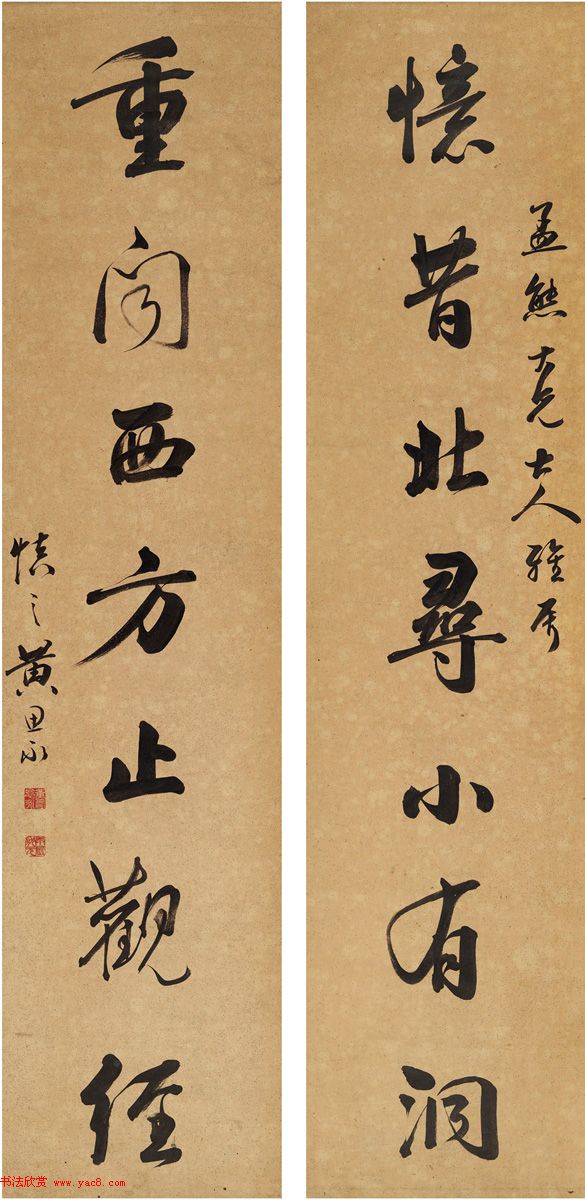 孟熊大兄大人雅属
憶昔北尋小有洞
重聞西方止觀經
慎之黃思永
书法欣赏 www.yac8.com